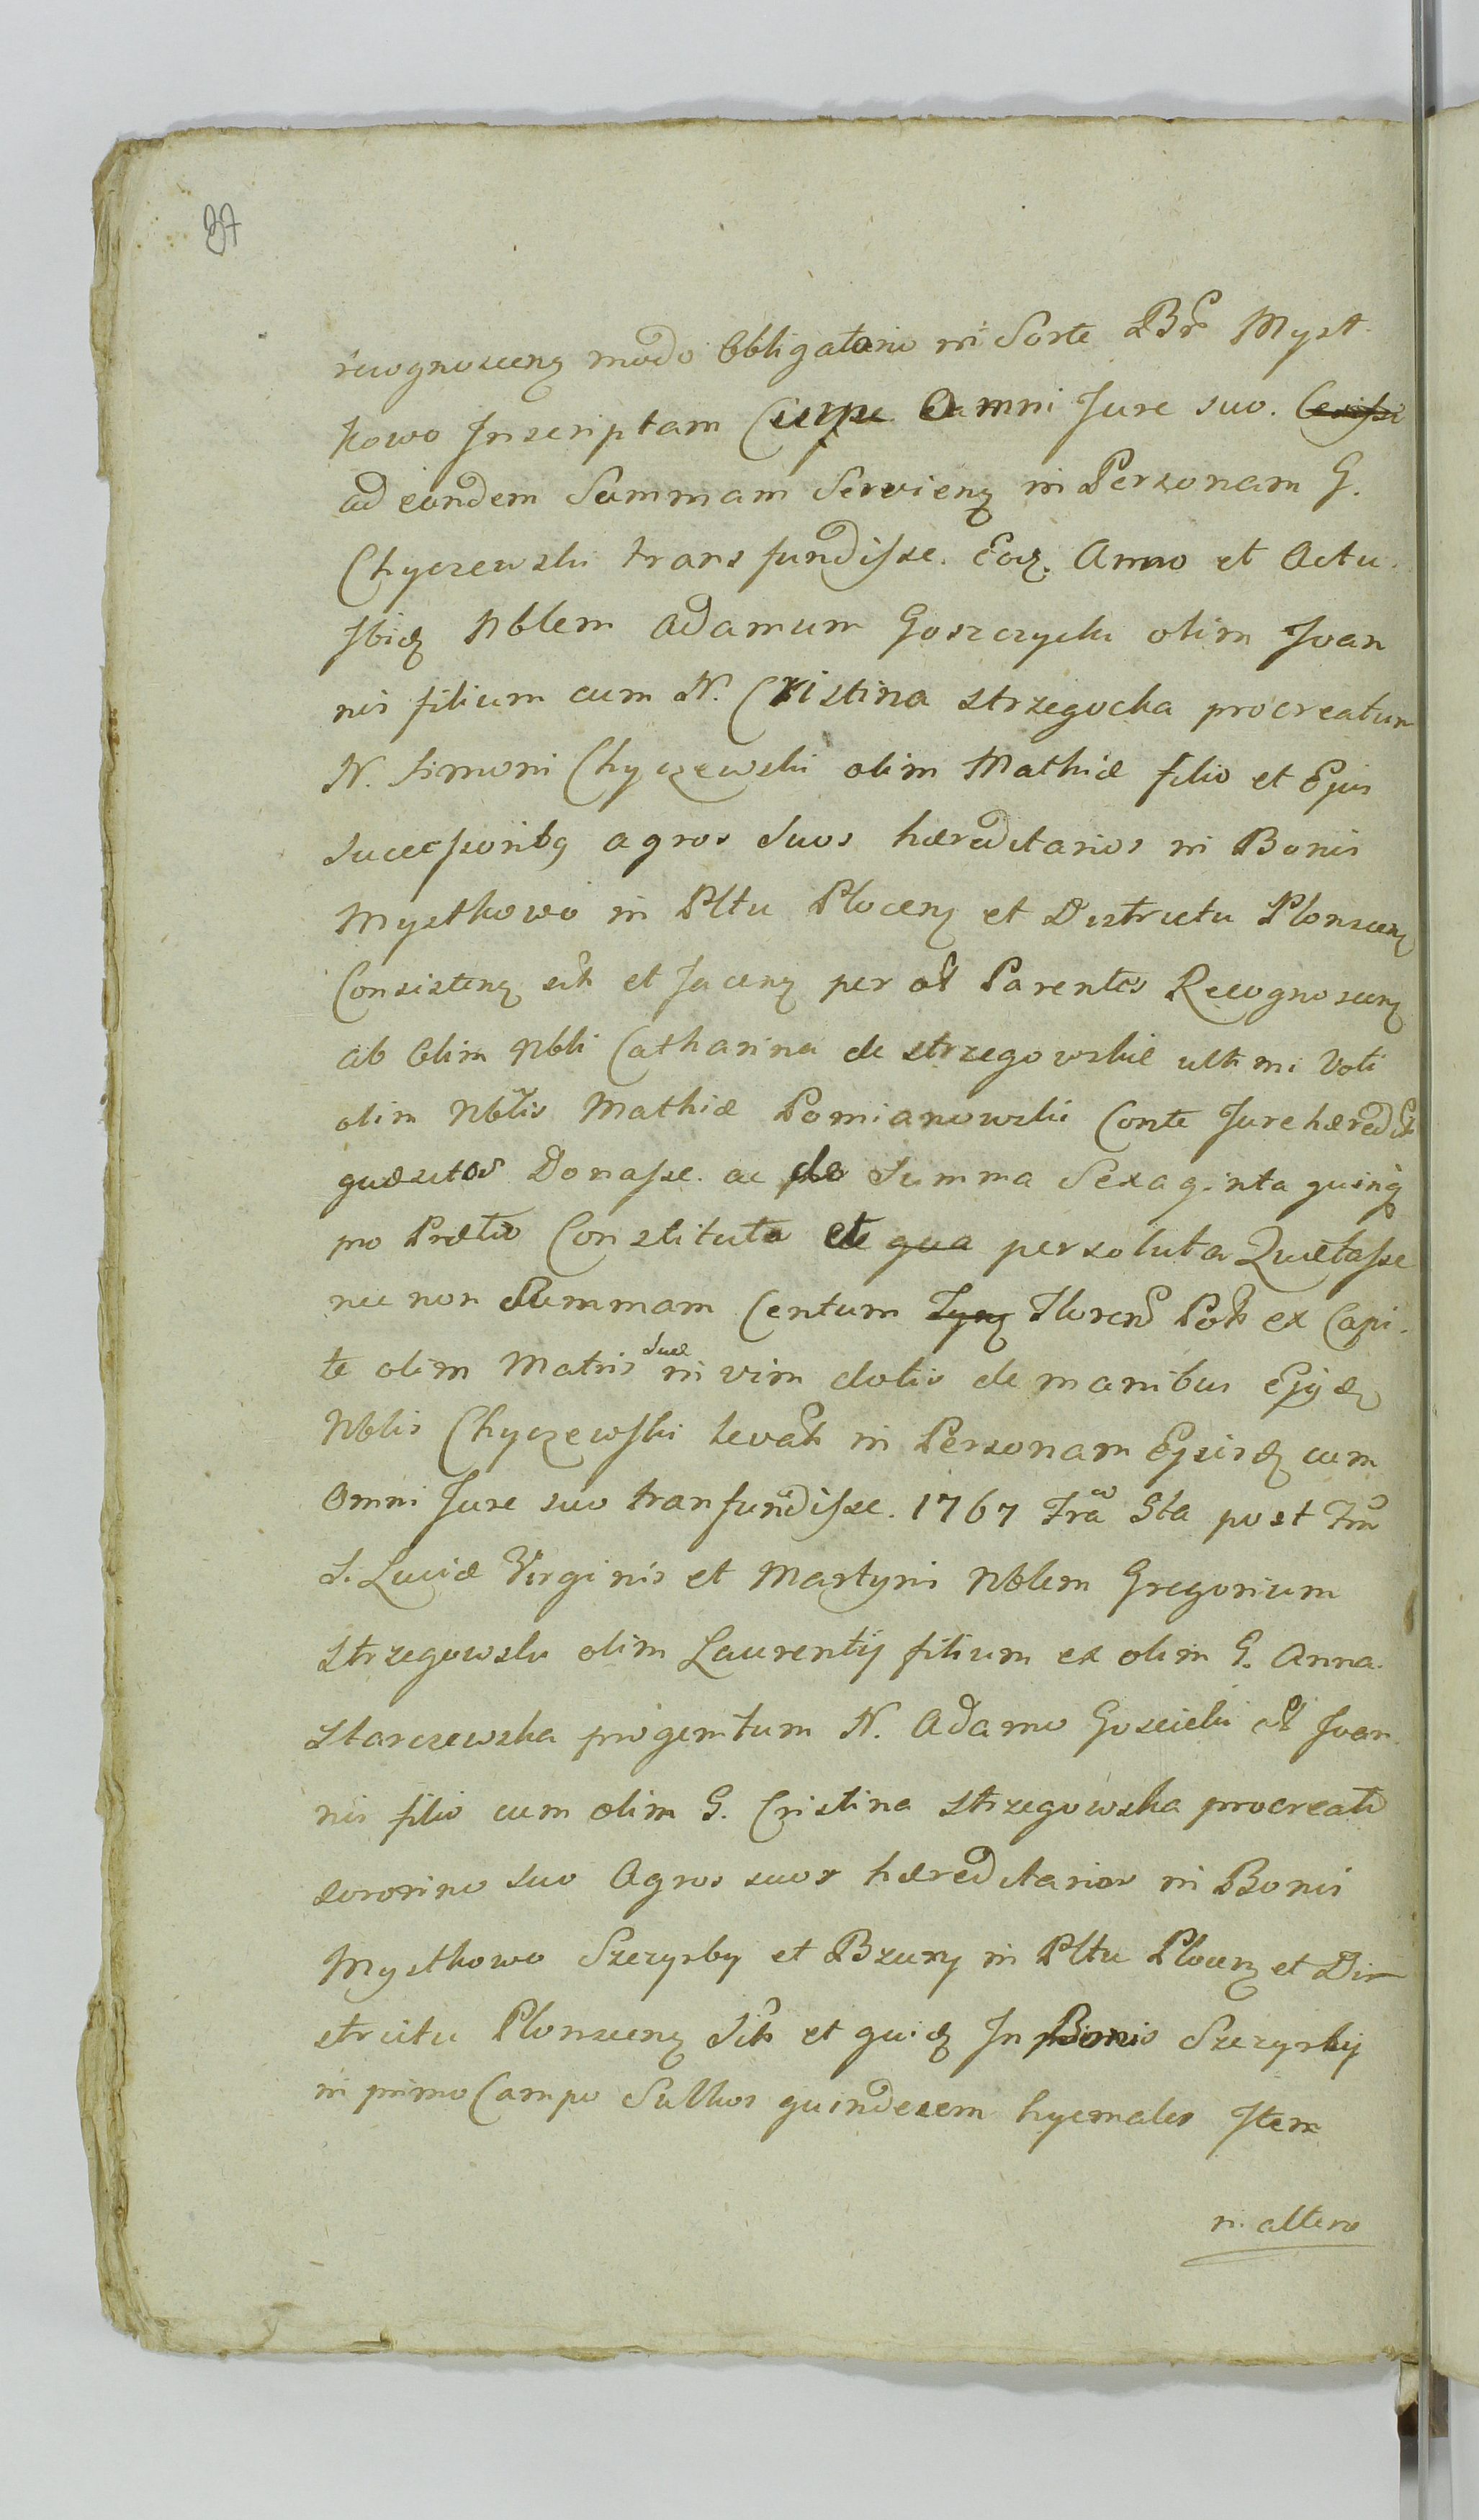 37
recognoscenꝫ modo Obligatorio in Sorte Bnȓ Myst
kowo Inscriptam Omni Jure suo.
ad eandem Summam Servienꝫ in Personam G.
Chyczewski transfundisse. Eoꝫ. Anno et Actu.
Ibidꝫ Nblem Adamum Goszczycki olim Joan
nis filium cum N. Cristina Strzegocka procreatum
N. Simoni Chyczewski olim Mathiæ filio et Ejus
Successoribꝫ agros suos hæreditarios in Bonis
Mystkowo in Pltu Plocenꝫ et Districtu Plonscenꝫ
Consistenꝫ sit et Jacenꝫ per ol Parentes Recognoscenꝫ
ab Olim Nbli Catharina de Strzegowskie ultimi Voti
olim Nblis Mathiæ Pomianowski Conte Jure hæredit
quæsitos Donasse. ac de Summa Sexaginta quinqꝫ
pro Prætio Constituta et qua persoluta Quietasse
nec non Summam Centum Tynꝫ Floren Pol ex Capi.
te olim Matris suæ in vim dotis de manibus Ejqdꝫ
Nblis Chyczewski levat in Personam Ejusdꝫ cum
Omni Jure suo tranfundisse. 1767 Fra Sta post Fm
S. Luciæ Virginis et Martyris Nblem Gregorium
Strzegowski olim Laurentij filium ex olim G. Anna
Starczewska progenitum N. Adamo Goscicki ol Joan
nis filio cum olim G. Cristina Strzegowska procreato
sororino suo Agros suos hæreditarios in Bonis
Mystkowo Szczyrby et Bzury in Pltu Plocenꝫ et Dis
trictu Plonscenꝫ Sit et quidꝫ In Bonis Szczyrby
in primo Campo Sulkos quindecem hyemales Item
in altero